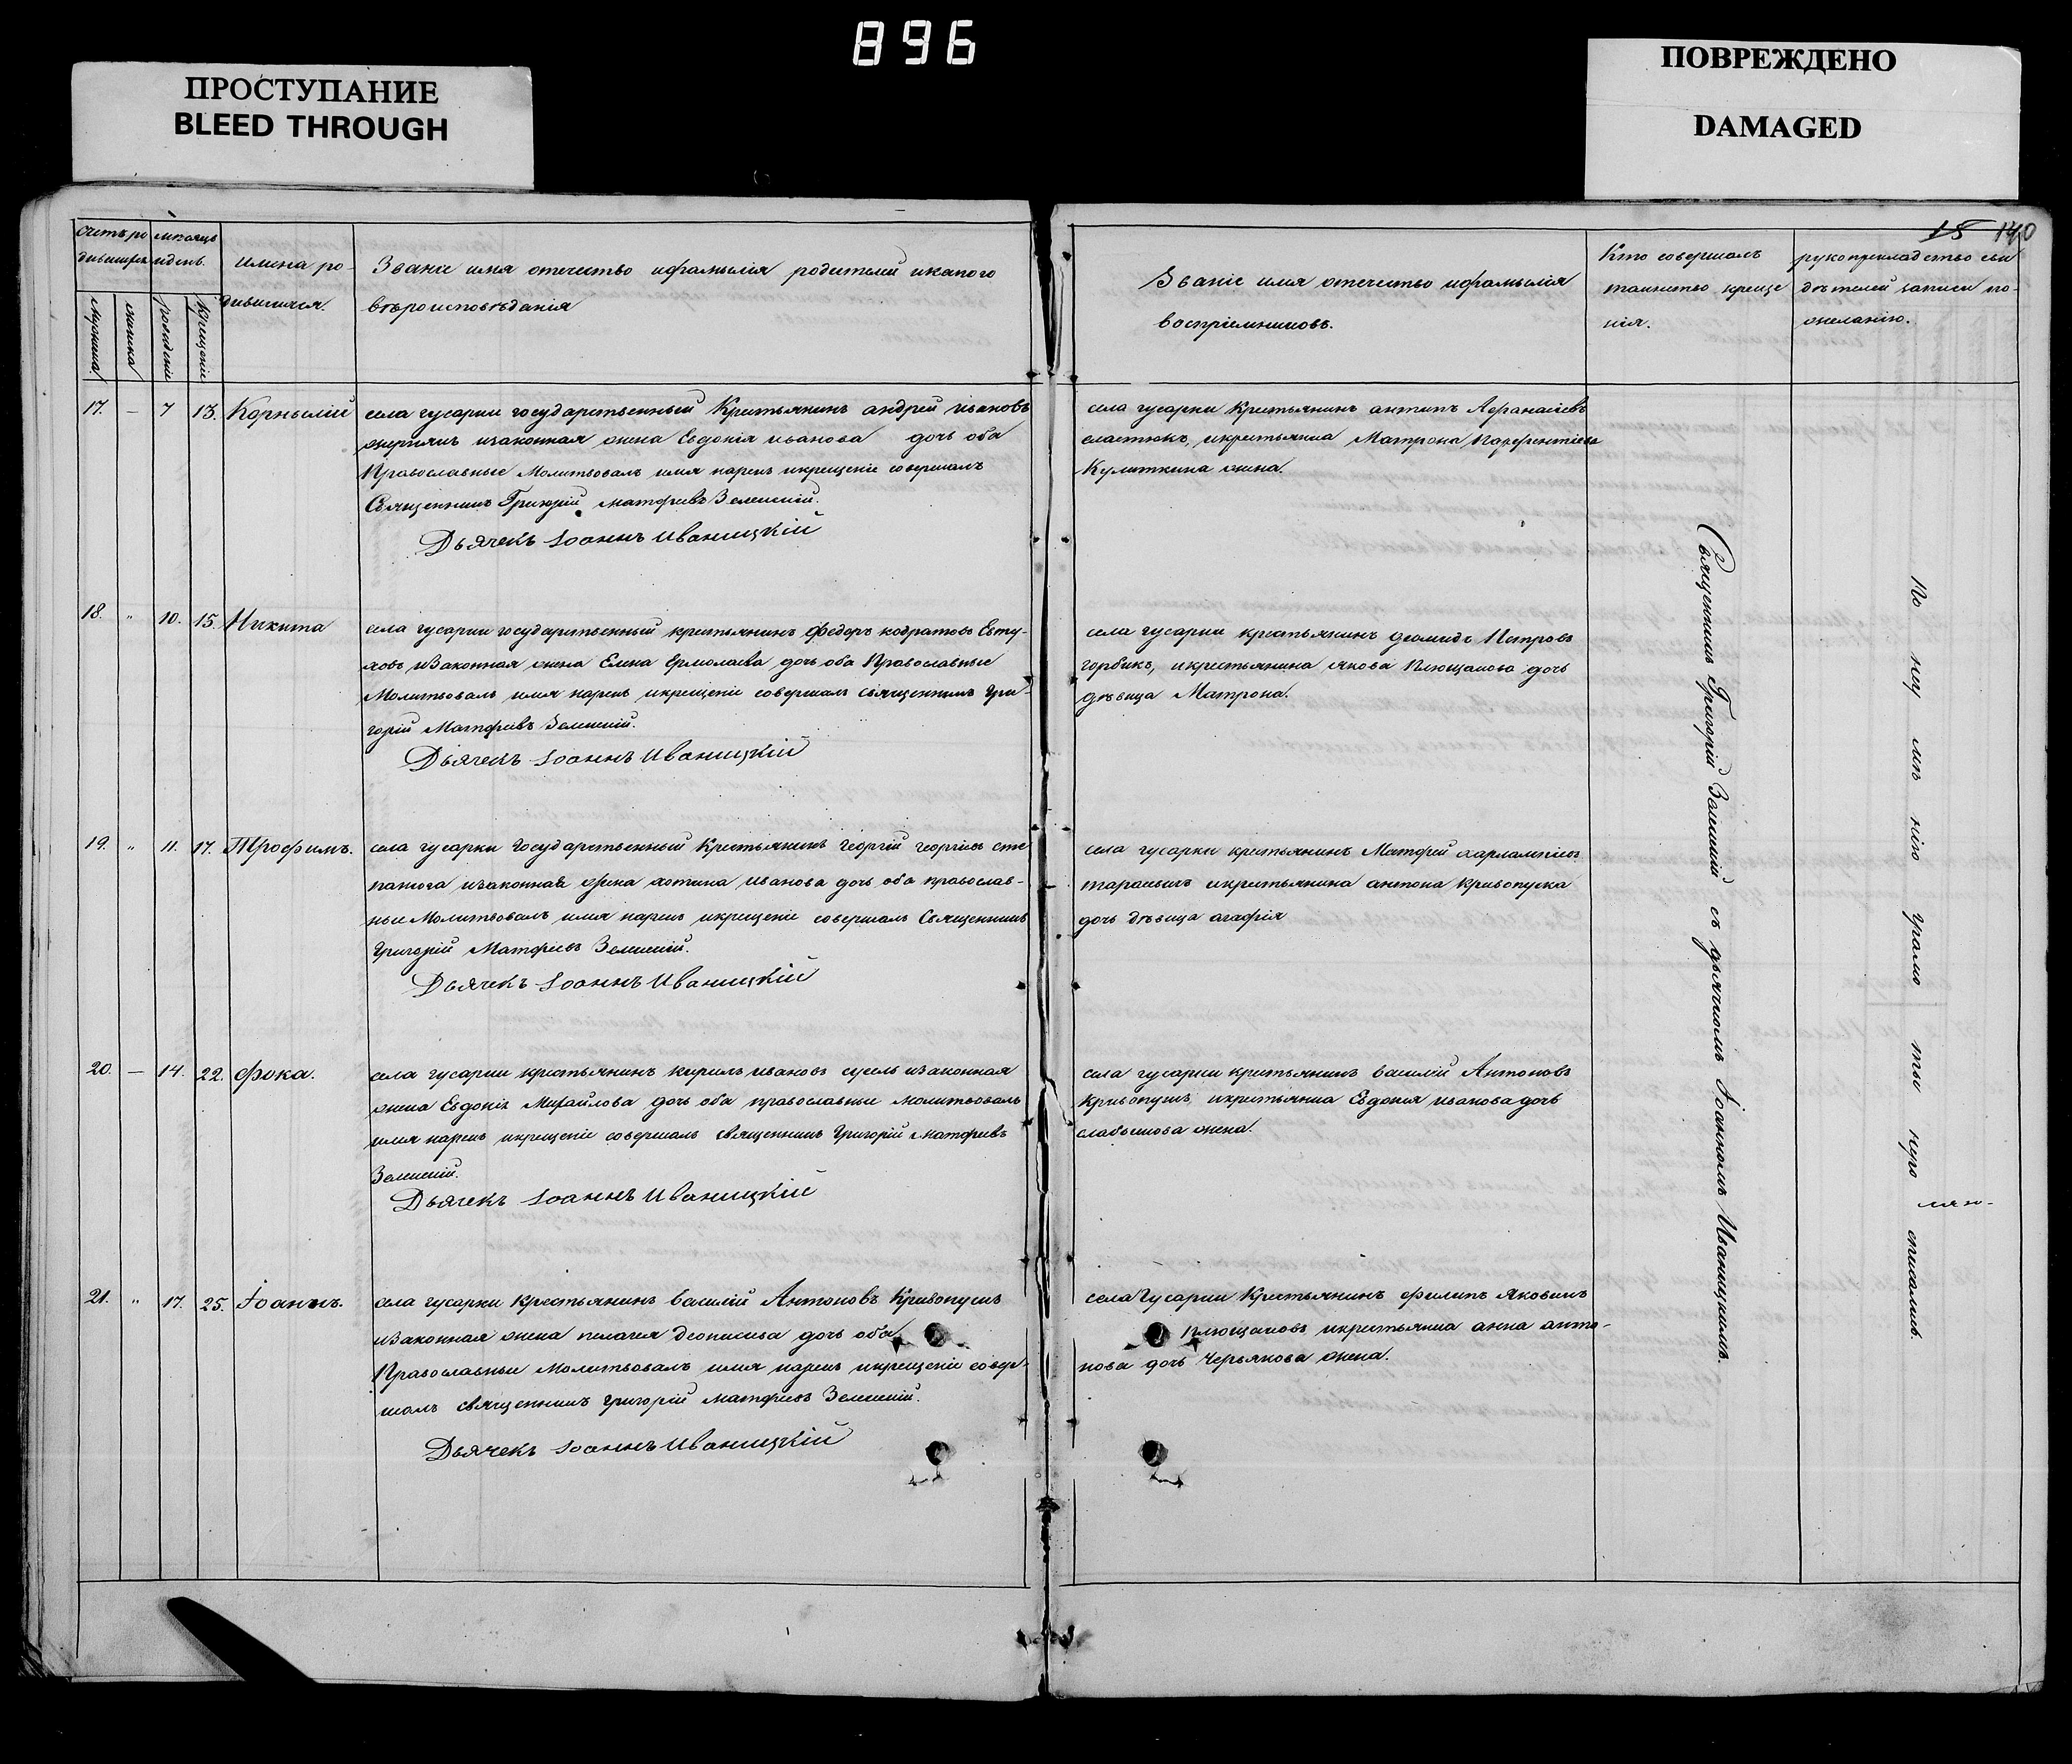 896
ПРОСТУПАНИЕ
BLEED THROUGH
ПОВРЕЖДЕНО
DAMAGED
15 140
счетъ ро
дившихся
мѣсяцъ
и день.
мужеска
женска
рожденіе
крещеніе
имена ро-
дившихся.
Званіе имя отечество и фамилія родителей и какого
вѣроисповѣданія
Званіе имя отечество и фамилія
воспріемниковъ.
Кто совершалъ
таинство креще
нія.
рукоприкладство сви
дѣтелей записи по-
желанію.
17. — 7 13. Корнилій
села гусарки государственный Крестьянинъ андрей ивановъ
и законная жена Евдокія иванова дочь оба
Православные Молитвовалъ имя нарекъ и крещеніе совершалъ
Священникъ Григорій матфіевъ Зеленскій.
Дьячекъ Іоаннъ Иваницкій
села гусарки Крестьянинъ антипъ Афанасіевъ
сластюкъ, и крестьянка Матрона Парфентіева
Кулиткина жена.
18. " 10. 15. Никита
села гусарки государственный крестьянинъ федоръ кодратовъ Евту-
ховъ и Законная жена Елена Ермолаева дочь оба Православные
Молитвовалъ имя нарекъ и крещеніе совершалъ священникъ Гри-
горій Матфіевъ Зеленскій.
Дьячекъ Іоаннъ Иваницкій
села гусарки крестьянинъ диомидъ Петровъ
горбикъ, и крестьянина якова Плющакова дочь
дѣвица Матрона.
19. " 11. 17. Трофимъ.
села гусарки Государственный Крестьянинъ георгій георгіевъ сте
панюга и законная жена хотина Иванова дочь оба православ-
ные Молитвовалъ имя нарекъ и крещеніе совершалъ Священникъ
Григорій Матфіевъ Зеленскій.
Дьячекъ Іоаннъ Иваницкій
села гусарки крестьянинъ Матфей харлампіевъ
тарасевичъ и крестьянина антона кривопуска
дочь дѣвица агафія
20. — 14. 22. фока.
села гусарки крестьянинъ кирилъ ивановъ сусль и законная
жена Евдокія Михайлова дочь оба православные молитвовалъ
имя нарекъ и крещеніе совершалъ священникъ Григорій матфіевъ
Зеленскій.
Дьячекъ Іоаннъ Иваницкій
села гусарки крестьянинъ василій Антоновъ
Кривопускъ и крестьянка Евдокия иванова дочь
жена.
21. " 17. 25. Іоаннъ.
села гусарки Крестьянинъ василій Антоновъ Кривопускъ
и Законная жена пелагея деонисиева дочь оба
Православные Молитвовалъ имя нарекъ и крещеніе совер-
шалъ священникъ григорій матфіевъ Зеленскій.
Дьячекъ Іоаннъ Иваницкій
села Гусарки Крестьянинъ филипъ Яковинъ
плющаковъ и крестьянка анна анто-
нова дочь Червякова жена.
Священникъ Григорій Зеленскій съ дьячкомъ Іоанномъ Иваницкимъ.